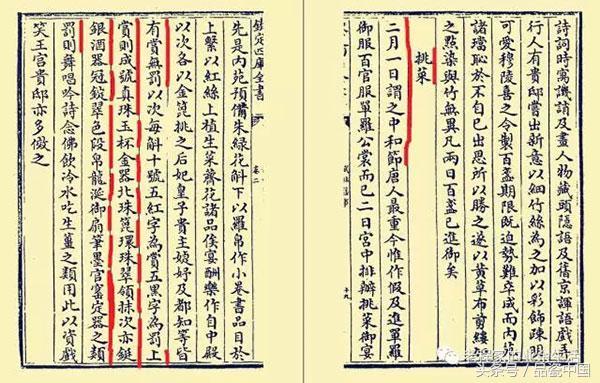 詩詞時寓譏誚及畫人物藏頭隱語及舊京諢語戲弄
行人有貴邸嘗出新意以細竹絲為之加以彩飾疎明
可愛穆陵喜之令製百盞期限既迫勢難卒成而內苑
諸璫恥於不自己出思所以勝之遂以黃草布剪縷
之點染與竹無異凡兩日百盞已進御矣
挑菜
二月一日謂之中和節唐人最重今惟作假及進單羅
御服百官服單羅公裳而已二日宮中排辦挑菜御宴
武林舊事
十九
欽定四庫全書
卷二
先是內苑預備朱綠花斛下以羅帛作小卷書品目於
上繫以紅絲上植生菜薺花諸品俟宴酬樂作自中殿
以次各以金篦挑之后妃皇子貴主婕妤及都知等皆
有賞無罰以次每斛十號五紅字為賞五黑字為罰上
賞則成號真珠玉杯金器北珠篦環珠翠領抹次亦鋌
銀酒器冠鋜翠色段帛龍涎御扇筆墨官窑定器之類
罰則舞唱吟詩念佛飲冷水吃生薑之類用此以資戲
笑王宮貴邸亦多倣之
头条号 / 品瓷中国